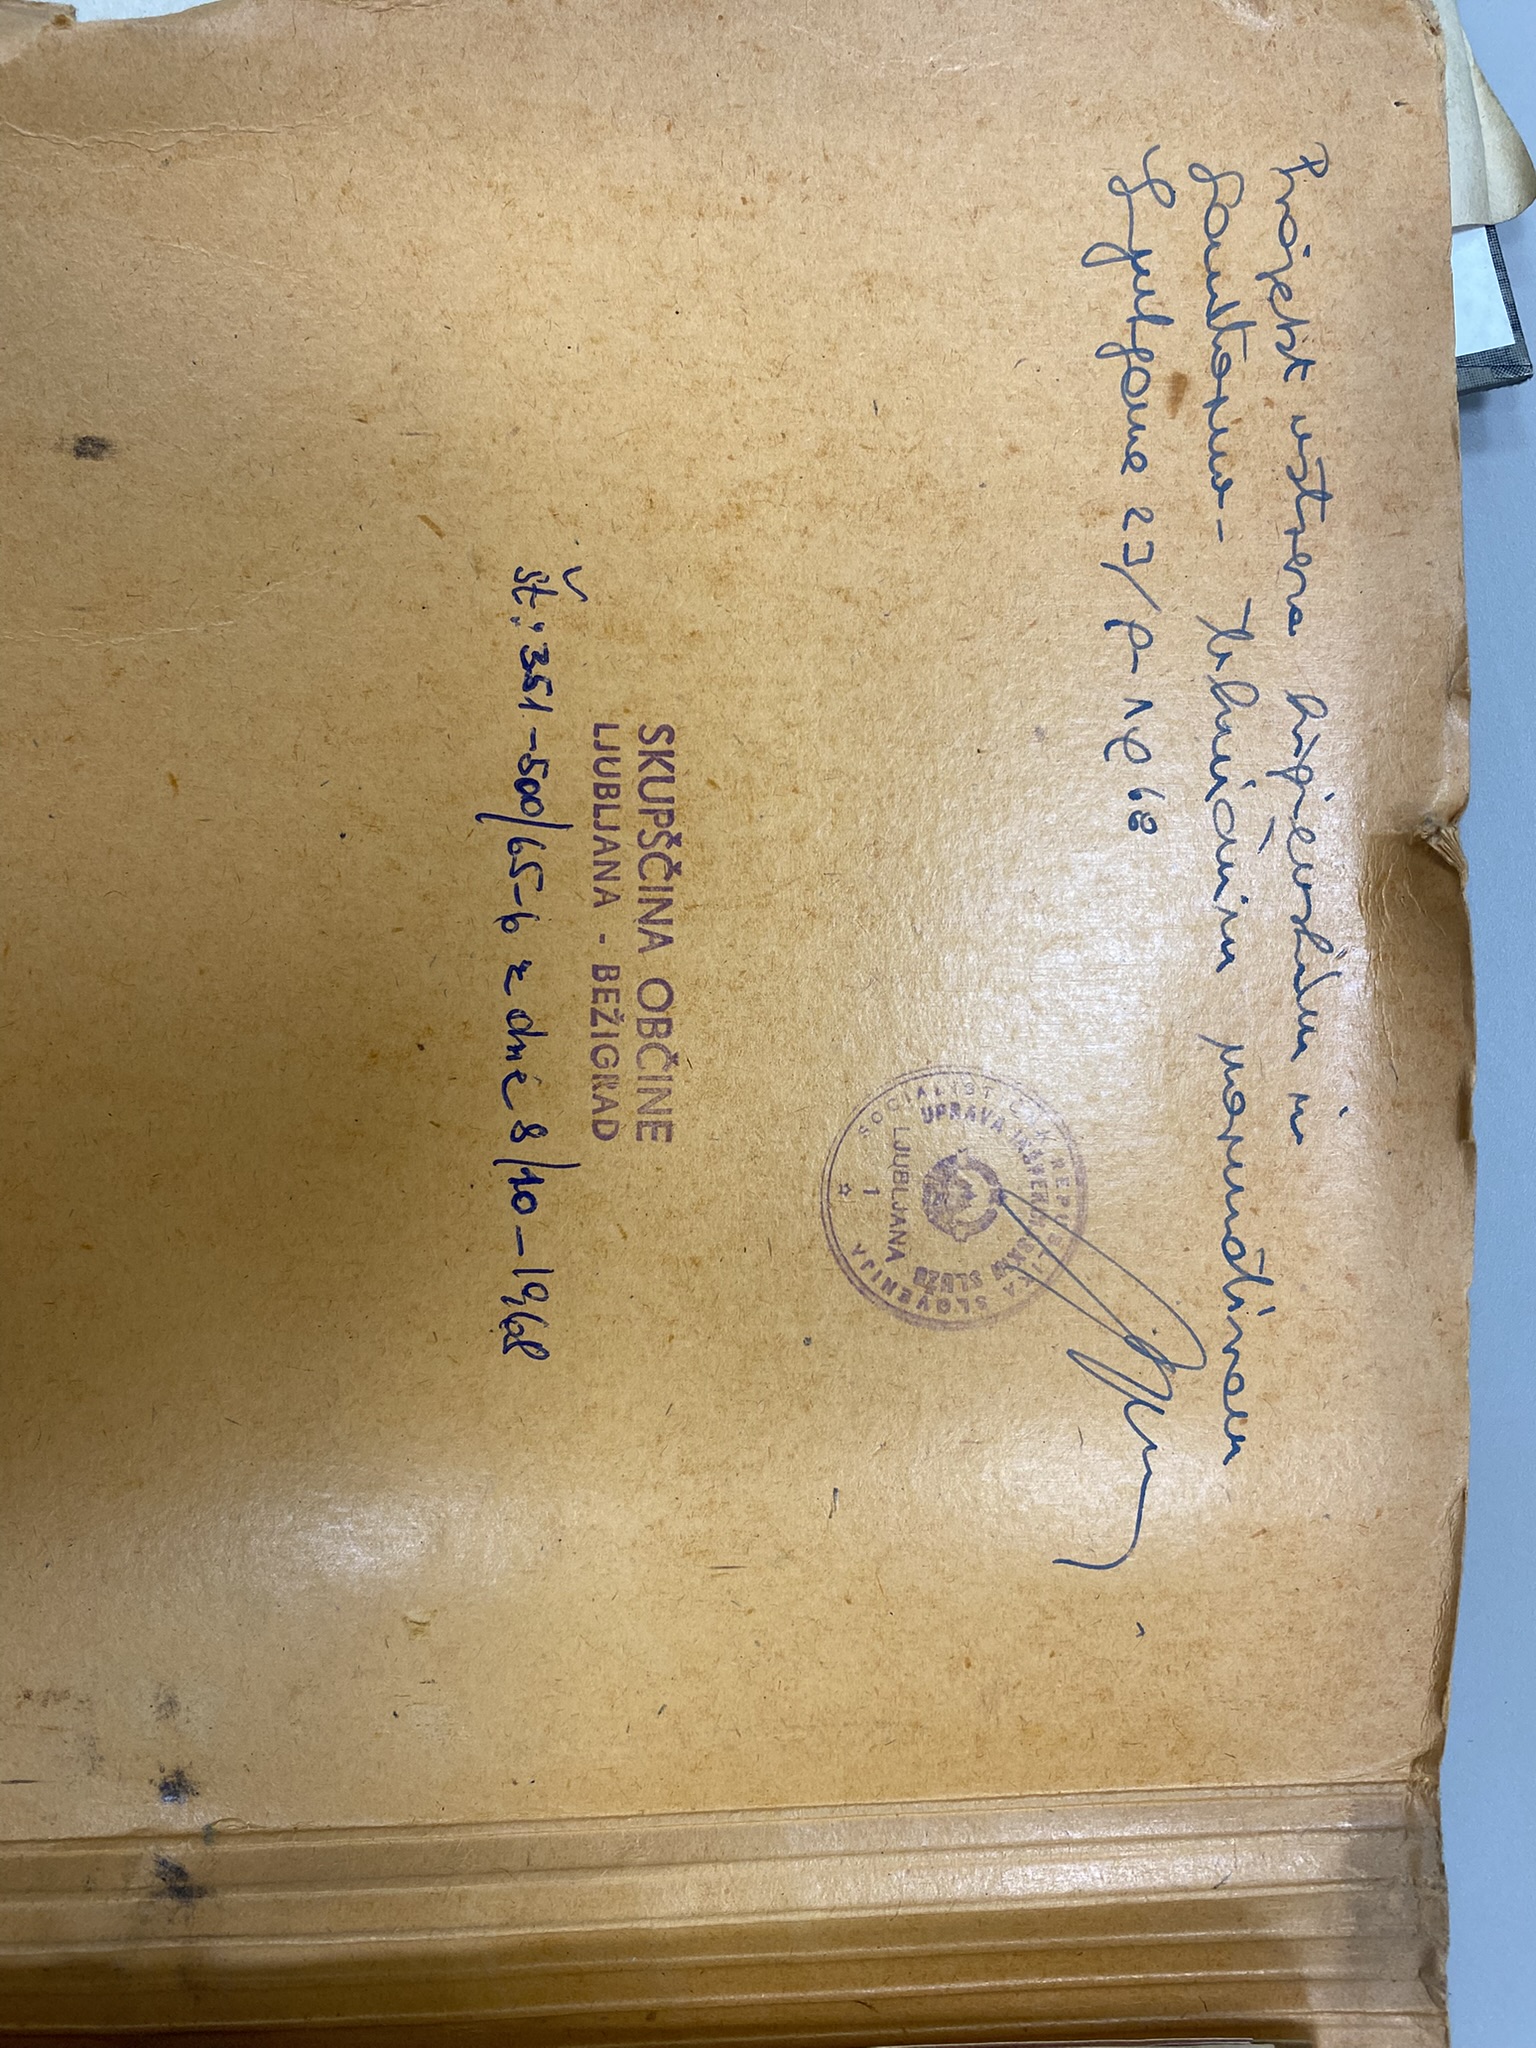 Projekt ustreza higienskim in
sanitarno - tehničnim normativom
Ljubljana 27/9-1968
SOCIALISTIČNA REPUBLIKA SLOVENIJA
UPRAVA INŠPEKCIJSKIH SLUŽB
LJUBLJANA
1
SKUPŠČINA OBČINE
LJUBLJANA - BEŽIGRAD
Št.: 351-500/65-6 z dne 8/10-1968